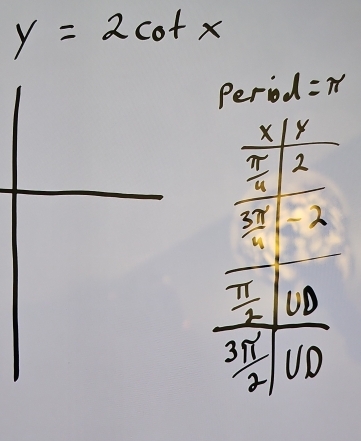 y = 2cot x
Period = π
x | y
π/4 | 2
3π/4 | -2
π/2 | UD
3π/2 | UD